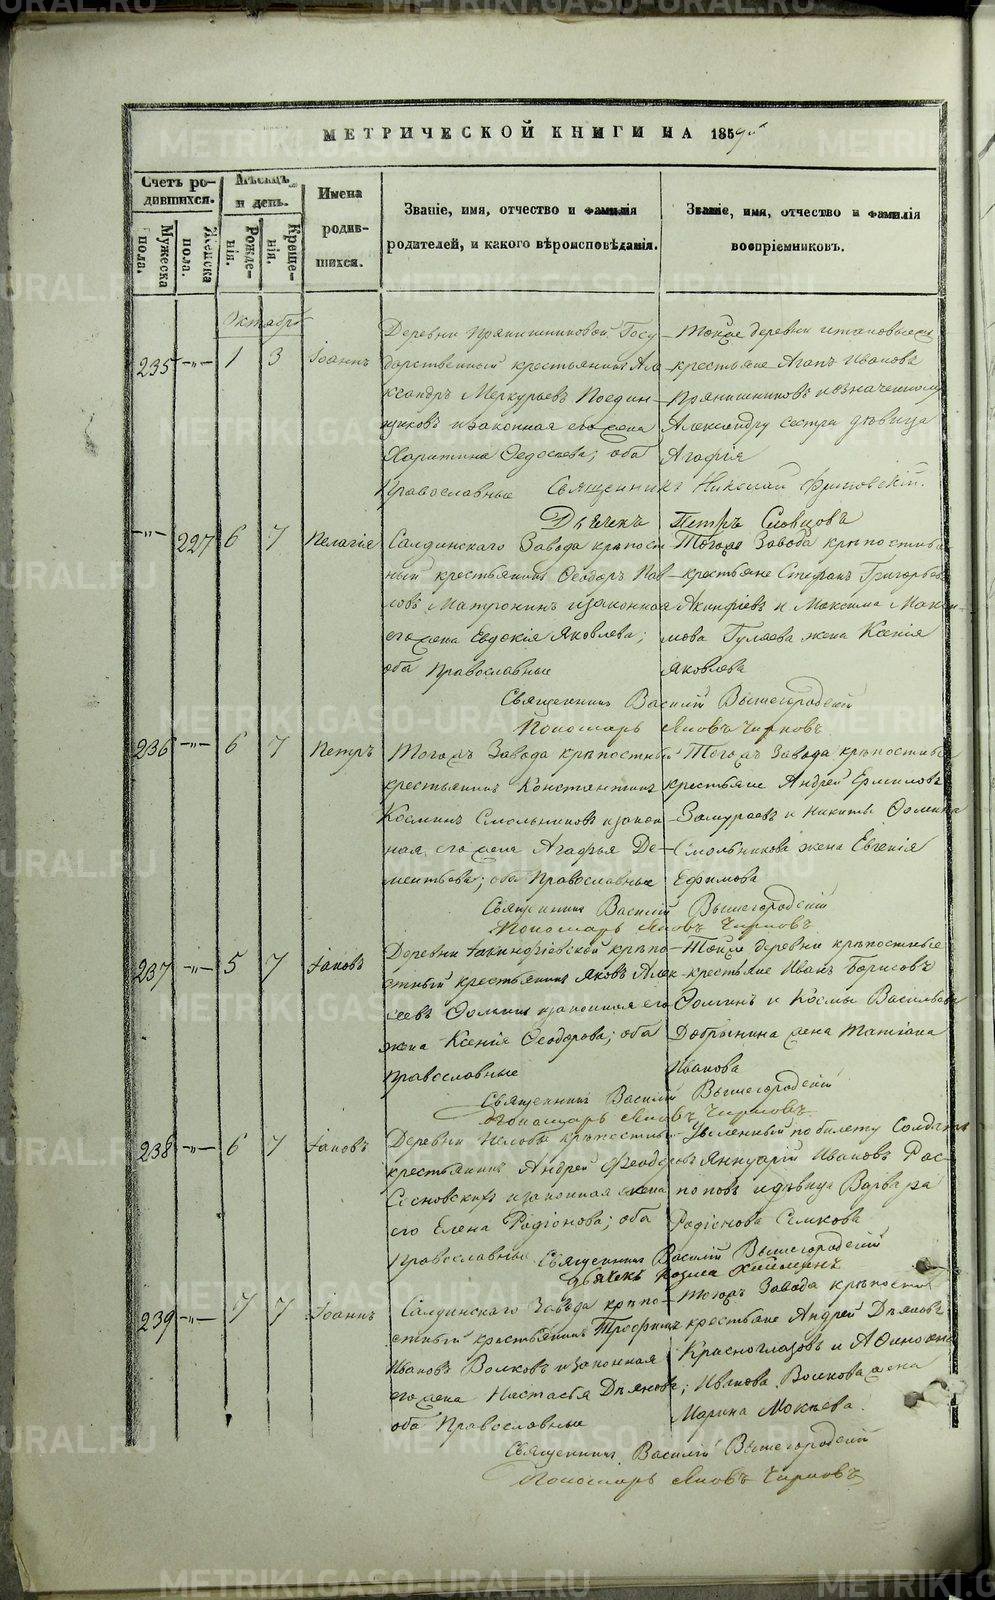 МЕТРИЧЕСКОЙ КНИГИ НА 1859й
Счетъ родившихся.
Мѣсяцъ и день.
Имена родившихся.
Званіе, имя, отчество и фамилія родителей, и какого вѣроисповѣданія.
Званіе, имя, отчество и фамилія воспріемниковъ.
Мужеска пола.
Женска пола.
Рожденія.
Крещенія.
Октабрь
235 -"- 1 3 Іоаннъ
Деревни Прянишниковой Госу
дарственный крестьянинъ Але
ксандръ Меркурьевъ Поедин-
щиковъ и законная его жена
Харитина Федосеева; оба
Православные
Тойже деревни
крестьяне Агапъ Иванова
Прянишниковъ и означенному
Александру сестра дѣвица
Агафія
Священникъ Николай
Дьячекъ Петръ Словцовъ
-"- 227 6 7 Пелагіе
Салдинскаго Завода крѣпост
ный крестьянинъ Ѳеодоръ Пав
ловъ Матронинъ и законная
его жена Евдокіе Яковлева;
оба Православные
Тогожъ Завода крѣпостные
крестьяне Стефанъ Григорьевъ
Акинфіевъ и Максима Макси-
мова Гуляева жена Ксенія
Яковлева
Священникъ Василій Вышегородскій
Пономарь Яковъ Чирковъ
236 -"- 6 7 Петръ
Тогожъ Завода крѣпостный
крестьянинъ Константинъ
Косминъ Смольниковъ и закон
ная его жена Агафья Де-
ментьева; оба Православные
Тогожъ Завода крѣпостные
крестьяне Андрей Ермиловъ
Замураевъ и Никиты Фомина
Смольникова жена Евгенія
Ефимова
Священникъ Василій Вышегородскій
Пономарь Яковъ Чирковъ
237 -"- 5 7 Іаковъ
Деревни Акинфіевской крѣпо-
стный крестьянинъ Яковъ Алек
сеевъ Фоминъ и законная его
жена Ксенія Ѳеодорова; оба
Православные
Тойже деревни крѣпостные
крестьяне Иванъ Борисовъ
Фоминъ и Космы Васильева
Добрынина жена Татіана
Иванова
Священникъ Василій Вышегородскій
Пономарь Яковъ Чирковъ
238 -"- 6 7 Іаковъ
Деревни Нелобы крѣпостный
крестьянинъ Андрей Феодоровъ
Сосновскихъ и законная жена
его Елена Родіонова; оба
Православные
Уволенный по билету Солдатъ
Яннуарій Ивановъ Рас-
поповъ и дѣвица Варвара
Родіонова Семкова
Священникъ Василій Вышегородскій
Дьячекъ Козма
239 -"- 7 7 Іоаннъ
Салдинскаго Завода крѣпо-
стный крестьянинъ Трофимъ
Ивановъ Волковъ и законная
его жена Настасья Демянова;
оба Православные
Тогожъ Завода крѣпостные
крестьяне Андрей Демяновъ
Красноглазовъ и Афиногена
Иванова Волкова жена
Марина Мокеева.
Священникъ Василій Вышегородскій
Пономарь Яковъ Чирковъ
METRIKI.GASO-URAL.RU